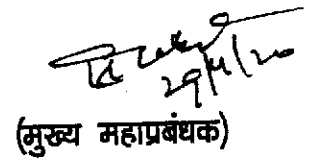 29/4/20
(मुख्य महाप्रबंधक)